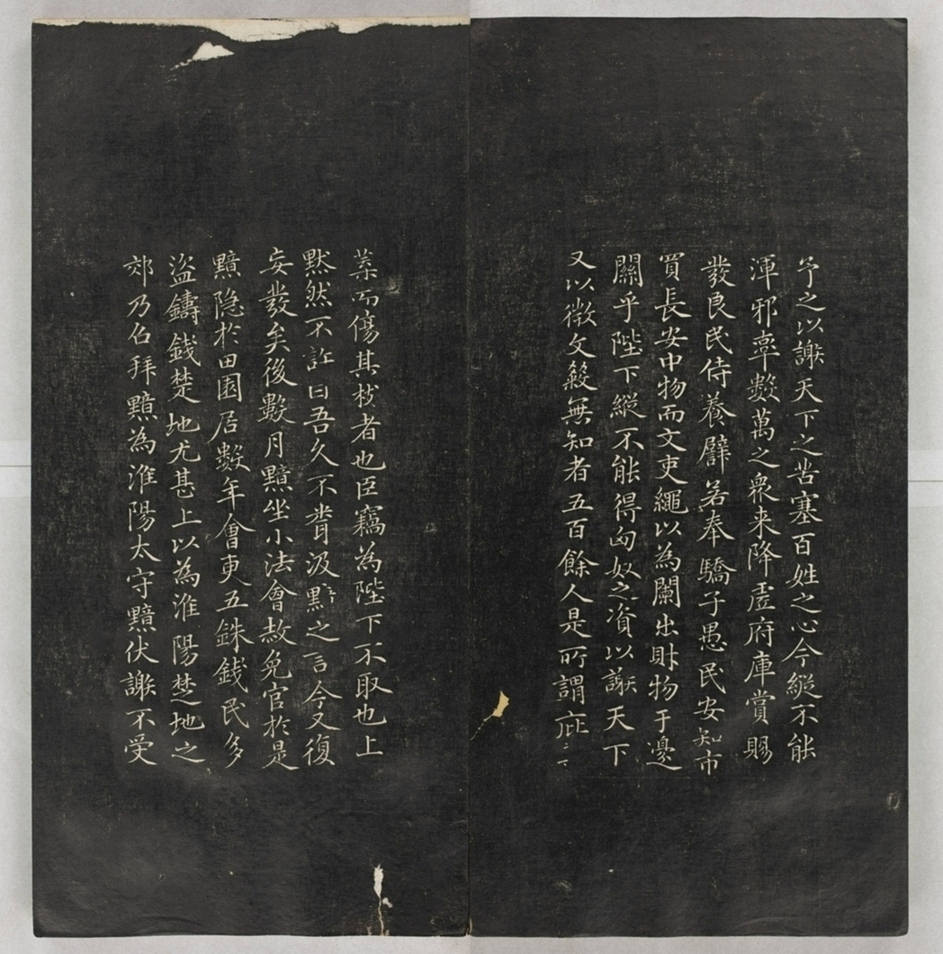 予之以謝天下之苦塞百姓之心今縱不能
渾邪率數萬之衆来降虛府庫賞賜
發良民侍養譬若奉驕子愚民安知市
買長安中物而文吏繩以為闌出財物于邊
關乎陛下縱不能得匈奴之資以謝天下
又以微文殺無知者五百餘人是所謂庇
葉而傷其枝者也臣竊為陛下不取也上
默然不許曰吾久不聞汲黯之言今又復
妄發矣後數月黯坐小法會赦免官於是
黯隐於田園居數年會更五銖錢民多
盜鑄錢楚地尤甚上以為淮陽楚地之
郊乃召拜黯為淮陽太守黯伏謝不受